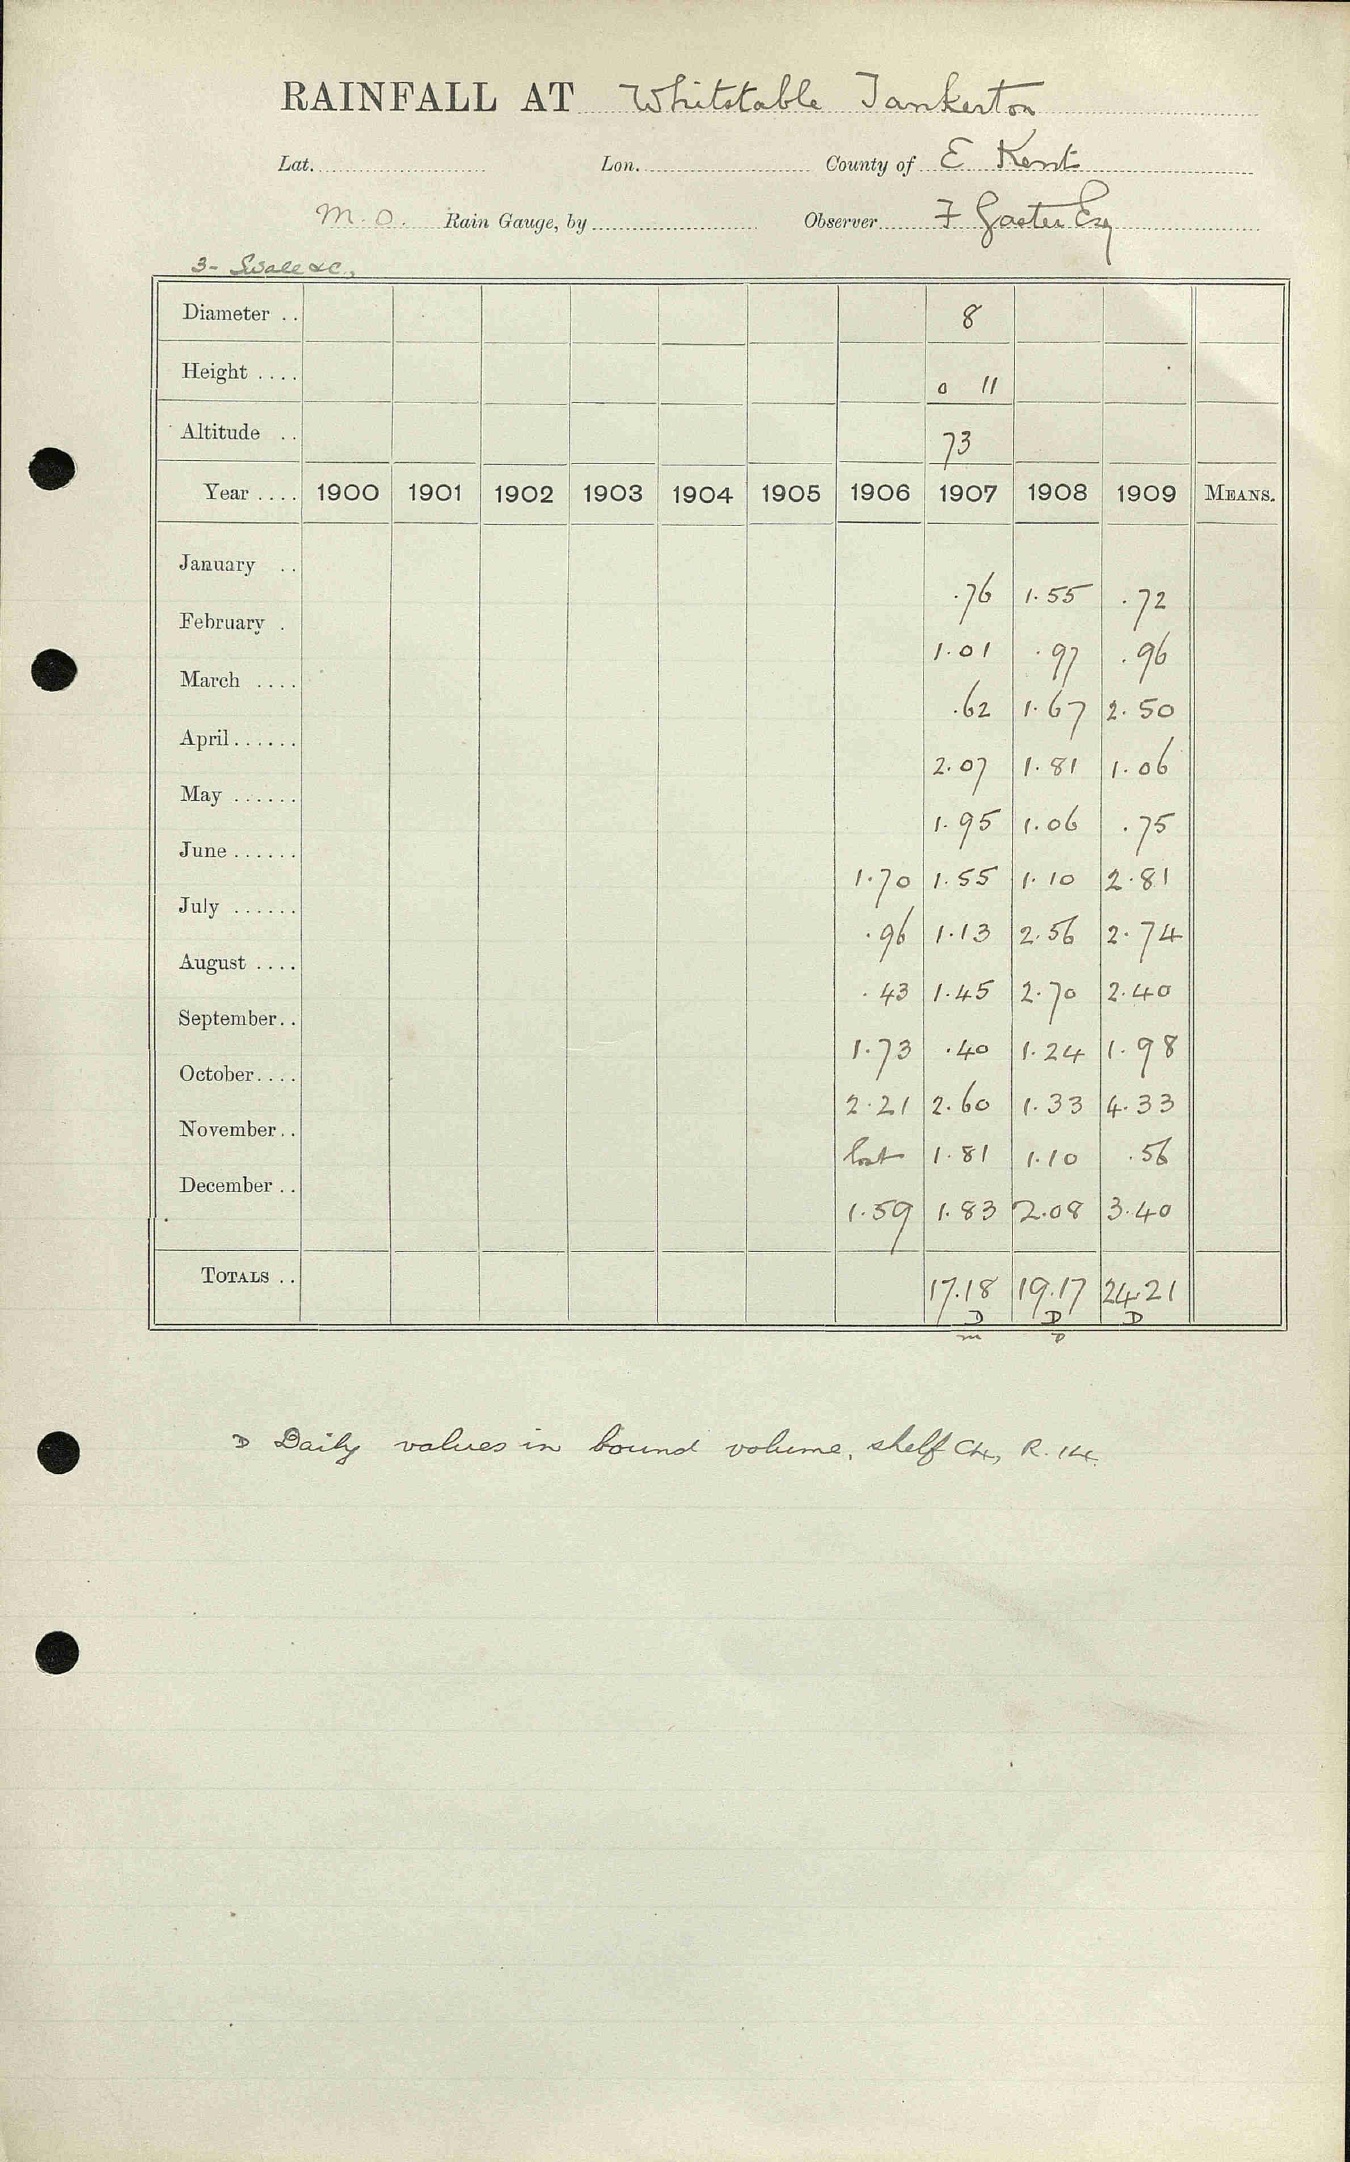 RAINFALL AT Whitstable Tankerton
Lat. Lon. County of E Kent
M.O. Rain Gauge, by Observer F Gaster Esq
3- Swale &c.,
Diameter .. 8
Height .... 0 11
Altitude .. 73
Year .... 1900 1901 1902 1903 1904 1905 1906 1907 1908 1909 MEANS.
January .. .76 1.55 .72
February . 1.01 .97 .96
March .... .62 1.67 2.50
April...... 2.07 1.81 1.06
May ...... 1.95 1.06 .75
June ...... 1.70 1.55 1.10 2.81
July ...... .96 1.13 2.56 2.74
August .... .43 1.45 2.70 2.40
September.. 1.73 .40 1.24 1.98
October.... 2.21 2.60 1.33 4.33
November.. lost 1.81 1.10 .56
December .. 1.59 1.83 2.08 3.40
TOTALS .. 17.18 19.17 24.21
D D D
m D
D Daily values in bound volume, shelf C4, R. 14.